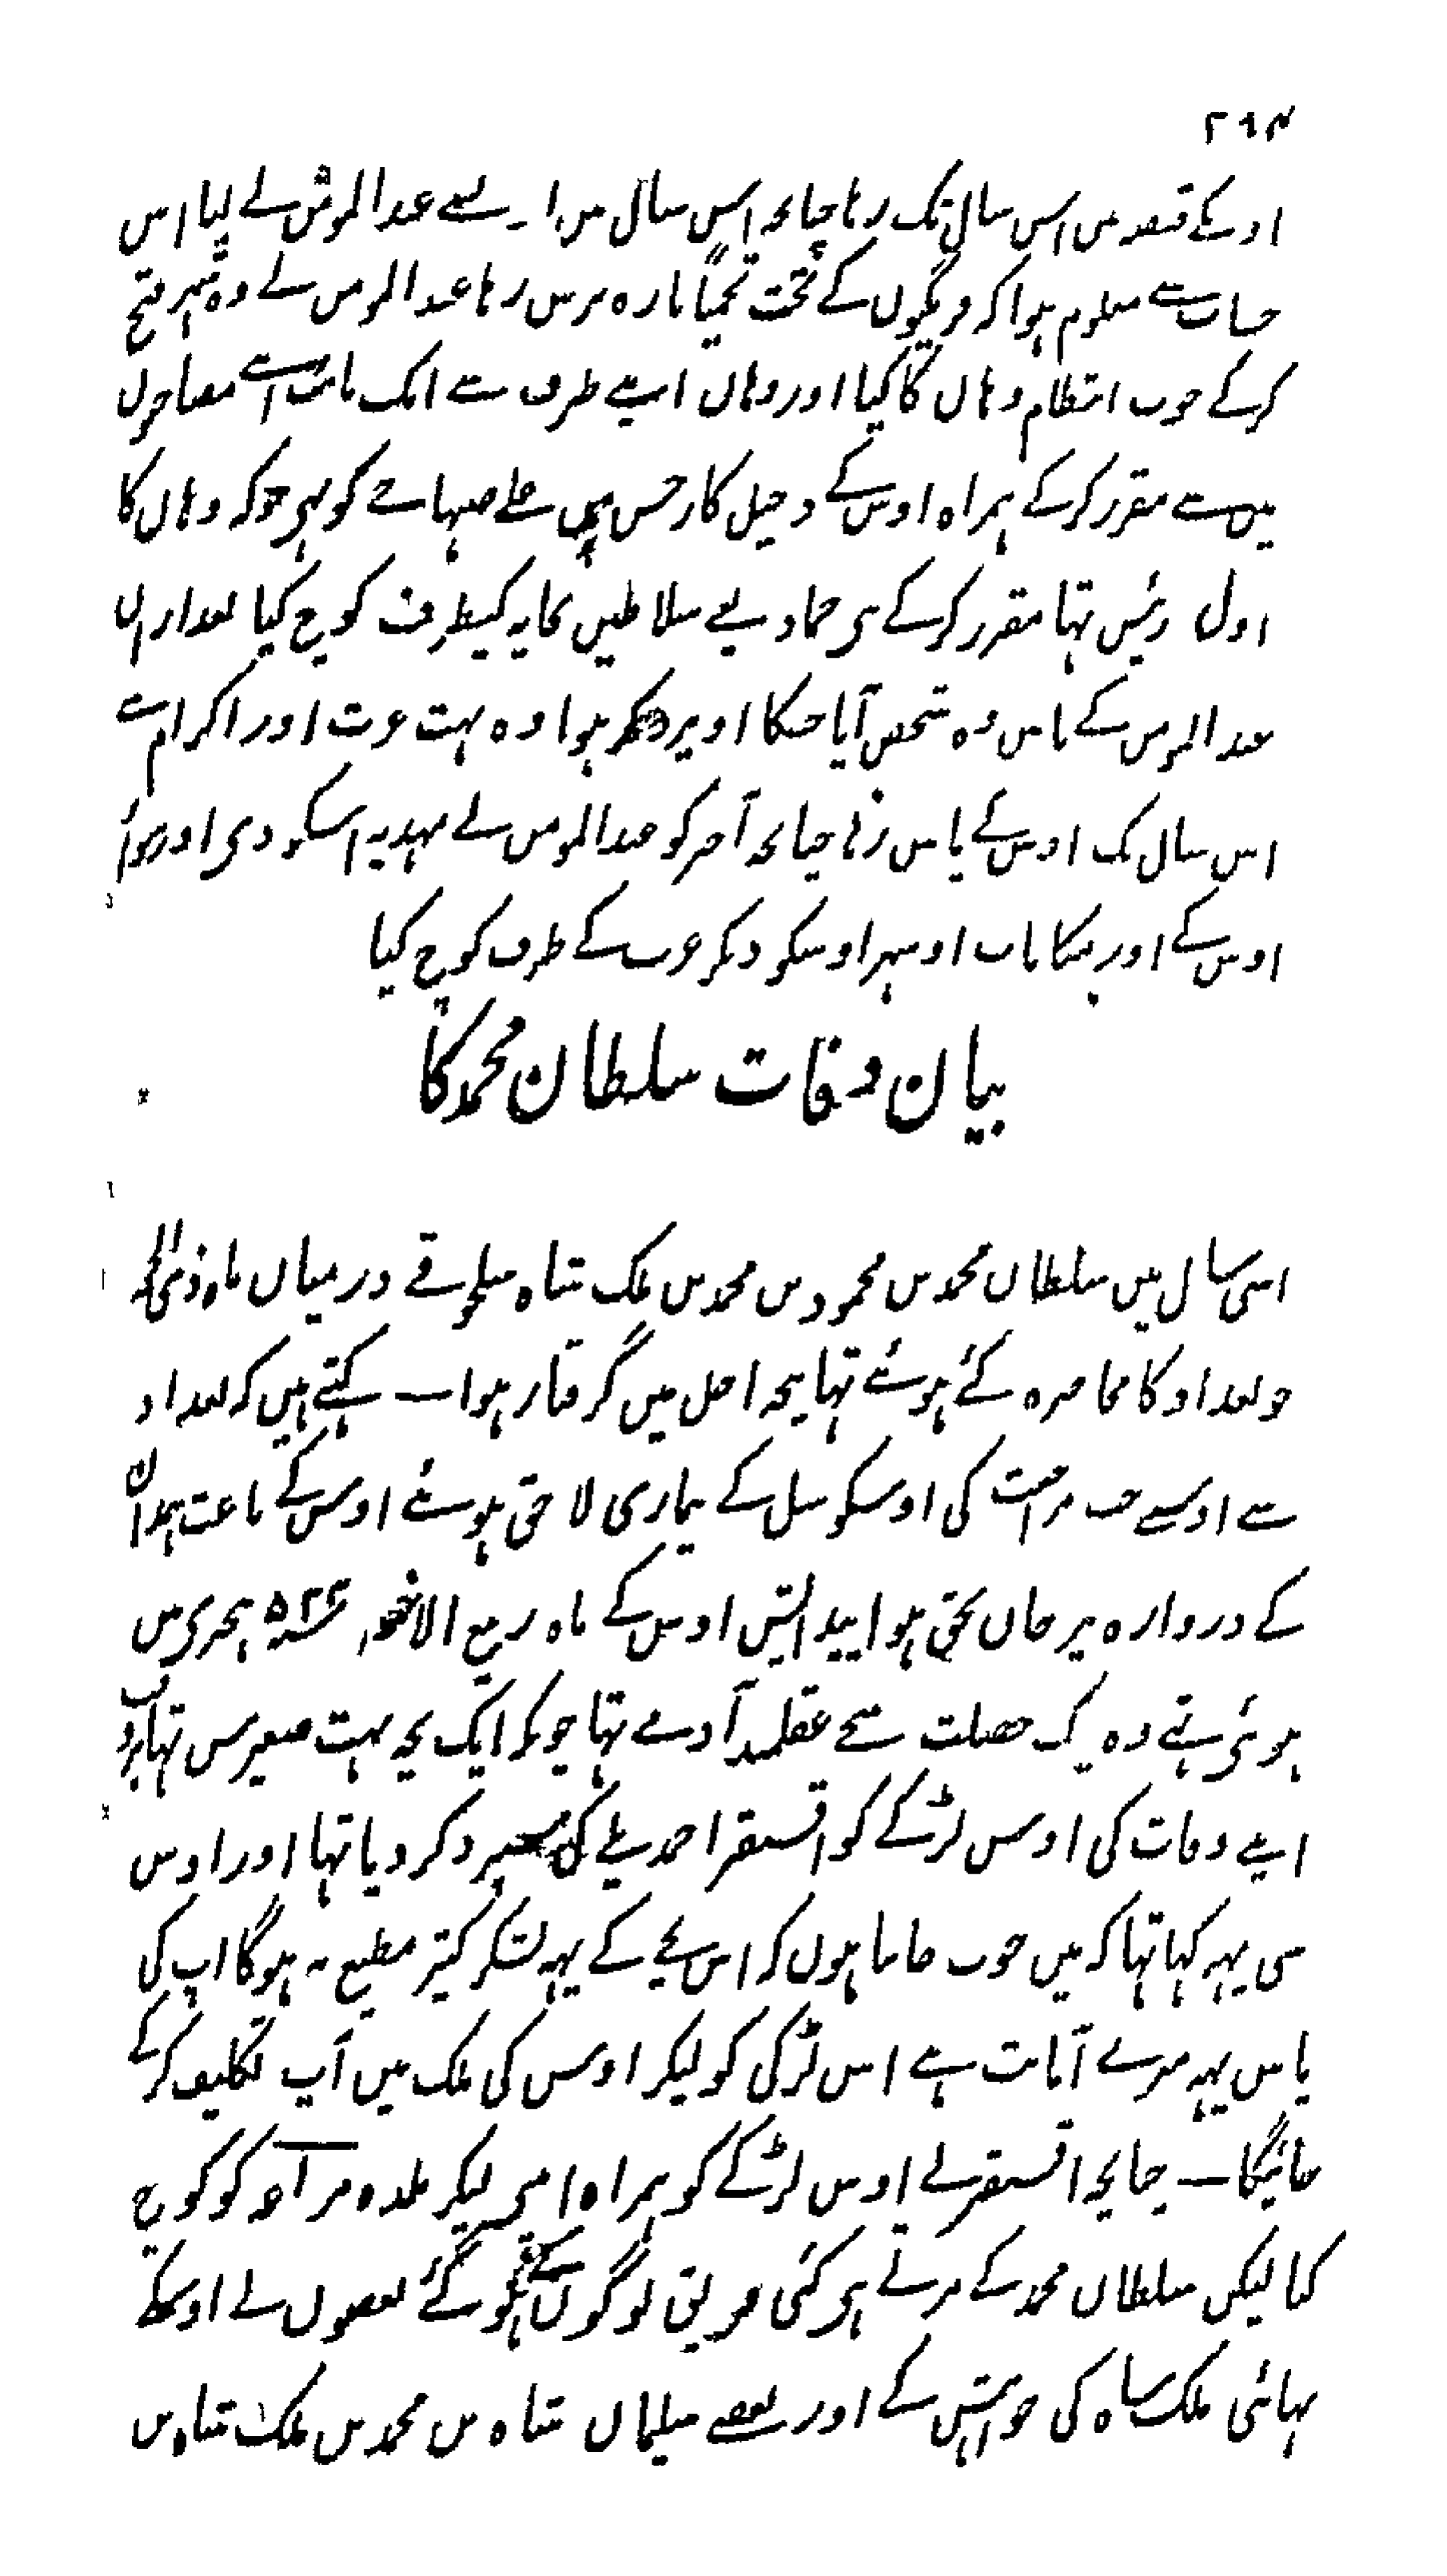 ۲۹۴
اونکے قبضہ میں اس سال تک رہا چنانچہ اس سال میں اونسے عبدالمومن نے لیا اس
حساب سے معلوم ہوا کہ فرنگیوں کے تحت تخمیناً بارہ برس رہا عبدالمومن نے وہ شہر فتح
کرکے خوب انتظام وہاں کا کیا اور وہاں اپنے طرف سے ایک نائب اپنے مصاحبوں
میں سے مقرر کرکے ہمراہ اوس کے دخیل کار حسن بن علے صنہاجے کو بھی جو کہ وہاں کا
اول رئیس تہا مقرر کرکے بنی حماد یعنے سلاطین بجایہ کیطرف کوچ کیا بعد ازاں
عبدالمومن کے پاس وہ شخص آیا جسکا اوپر ذکر ہوا وہ بہت عزت اور اکرام سے
اس سال تک اوس کے پاس رہا چنانچہ آخر کو عبدالمومن نے مہدیہ اسکو دی اور سواے
اوس کے اور مکانات اوسہر اوسکو دیکر غرب کے طرف کوچ کیا
بیان وفات سلطان محمد کا
اسی سال میں سلطان محمد بن محمود بن محمد بن ملک شاہ سلجوقے درمیان ماہ ذی الحجہ
جو بغداد کا محاصرہ کئے ہوئے تہا پنجہ اجل میں گرفتار ہوا — کہتے ہیں کہ بغداد
سے اوسنے جب مراجعت کی اوسکو سل کے بیماری لاحق ہوئے اوس کے باعث ہمدان
کے دروازہ پر جاں بحق ہوا پیدایش اوس کے ماہ ربیع الاخر ۵۲۲ ہجری میں
ہوئی تہے وہ نیک خصلت سخے عقلمند آدمے تہا چونکہ ایک بچہ بہت صغیر سن تہا بروقت
اپنے وفات کی اوس لڑکے کو اقسنقر احمدیلے کی سپرد کر دیا تہا اور اوس
سی یہہ کہا تہا کہ میں خوب جانتا ہوں کہ اس بچے کے یہہ لشکر کثیر مطیع نہ ہوگا اپ کی
پاس یہہ میرے آمانت ہے اس لڑکی کو لیکر اوس کی ملک میں آپ تکلیف کرکے
جائیگا — چنانچہ اقسنقر نے اوس لڑکے کو ہمراہ اپنی لیکر بلدہ مراغہ کو کوچ
کیا لیکن سلطان محمد کے مرتے ہی کئی فریق لوگوں کے ہوگئے بعضوں نے اوسکے
بہائی ملک شاہ کی خواہش کے اور بعضے سلیمان شاہ بن محمد بن ملک شاہ بن